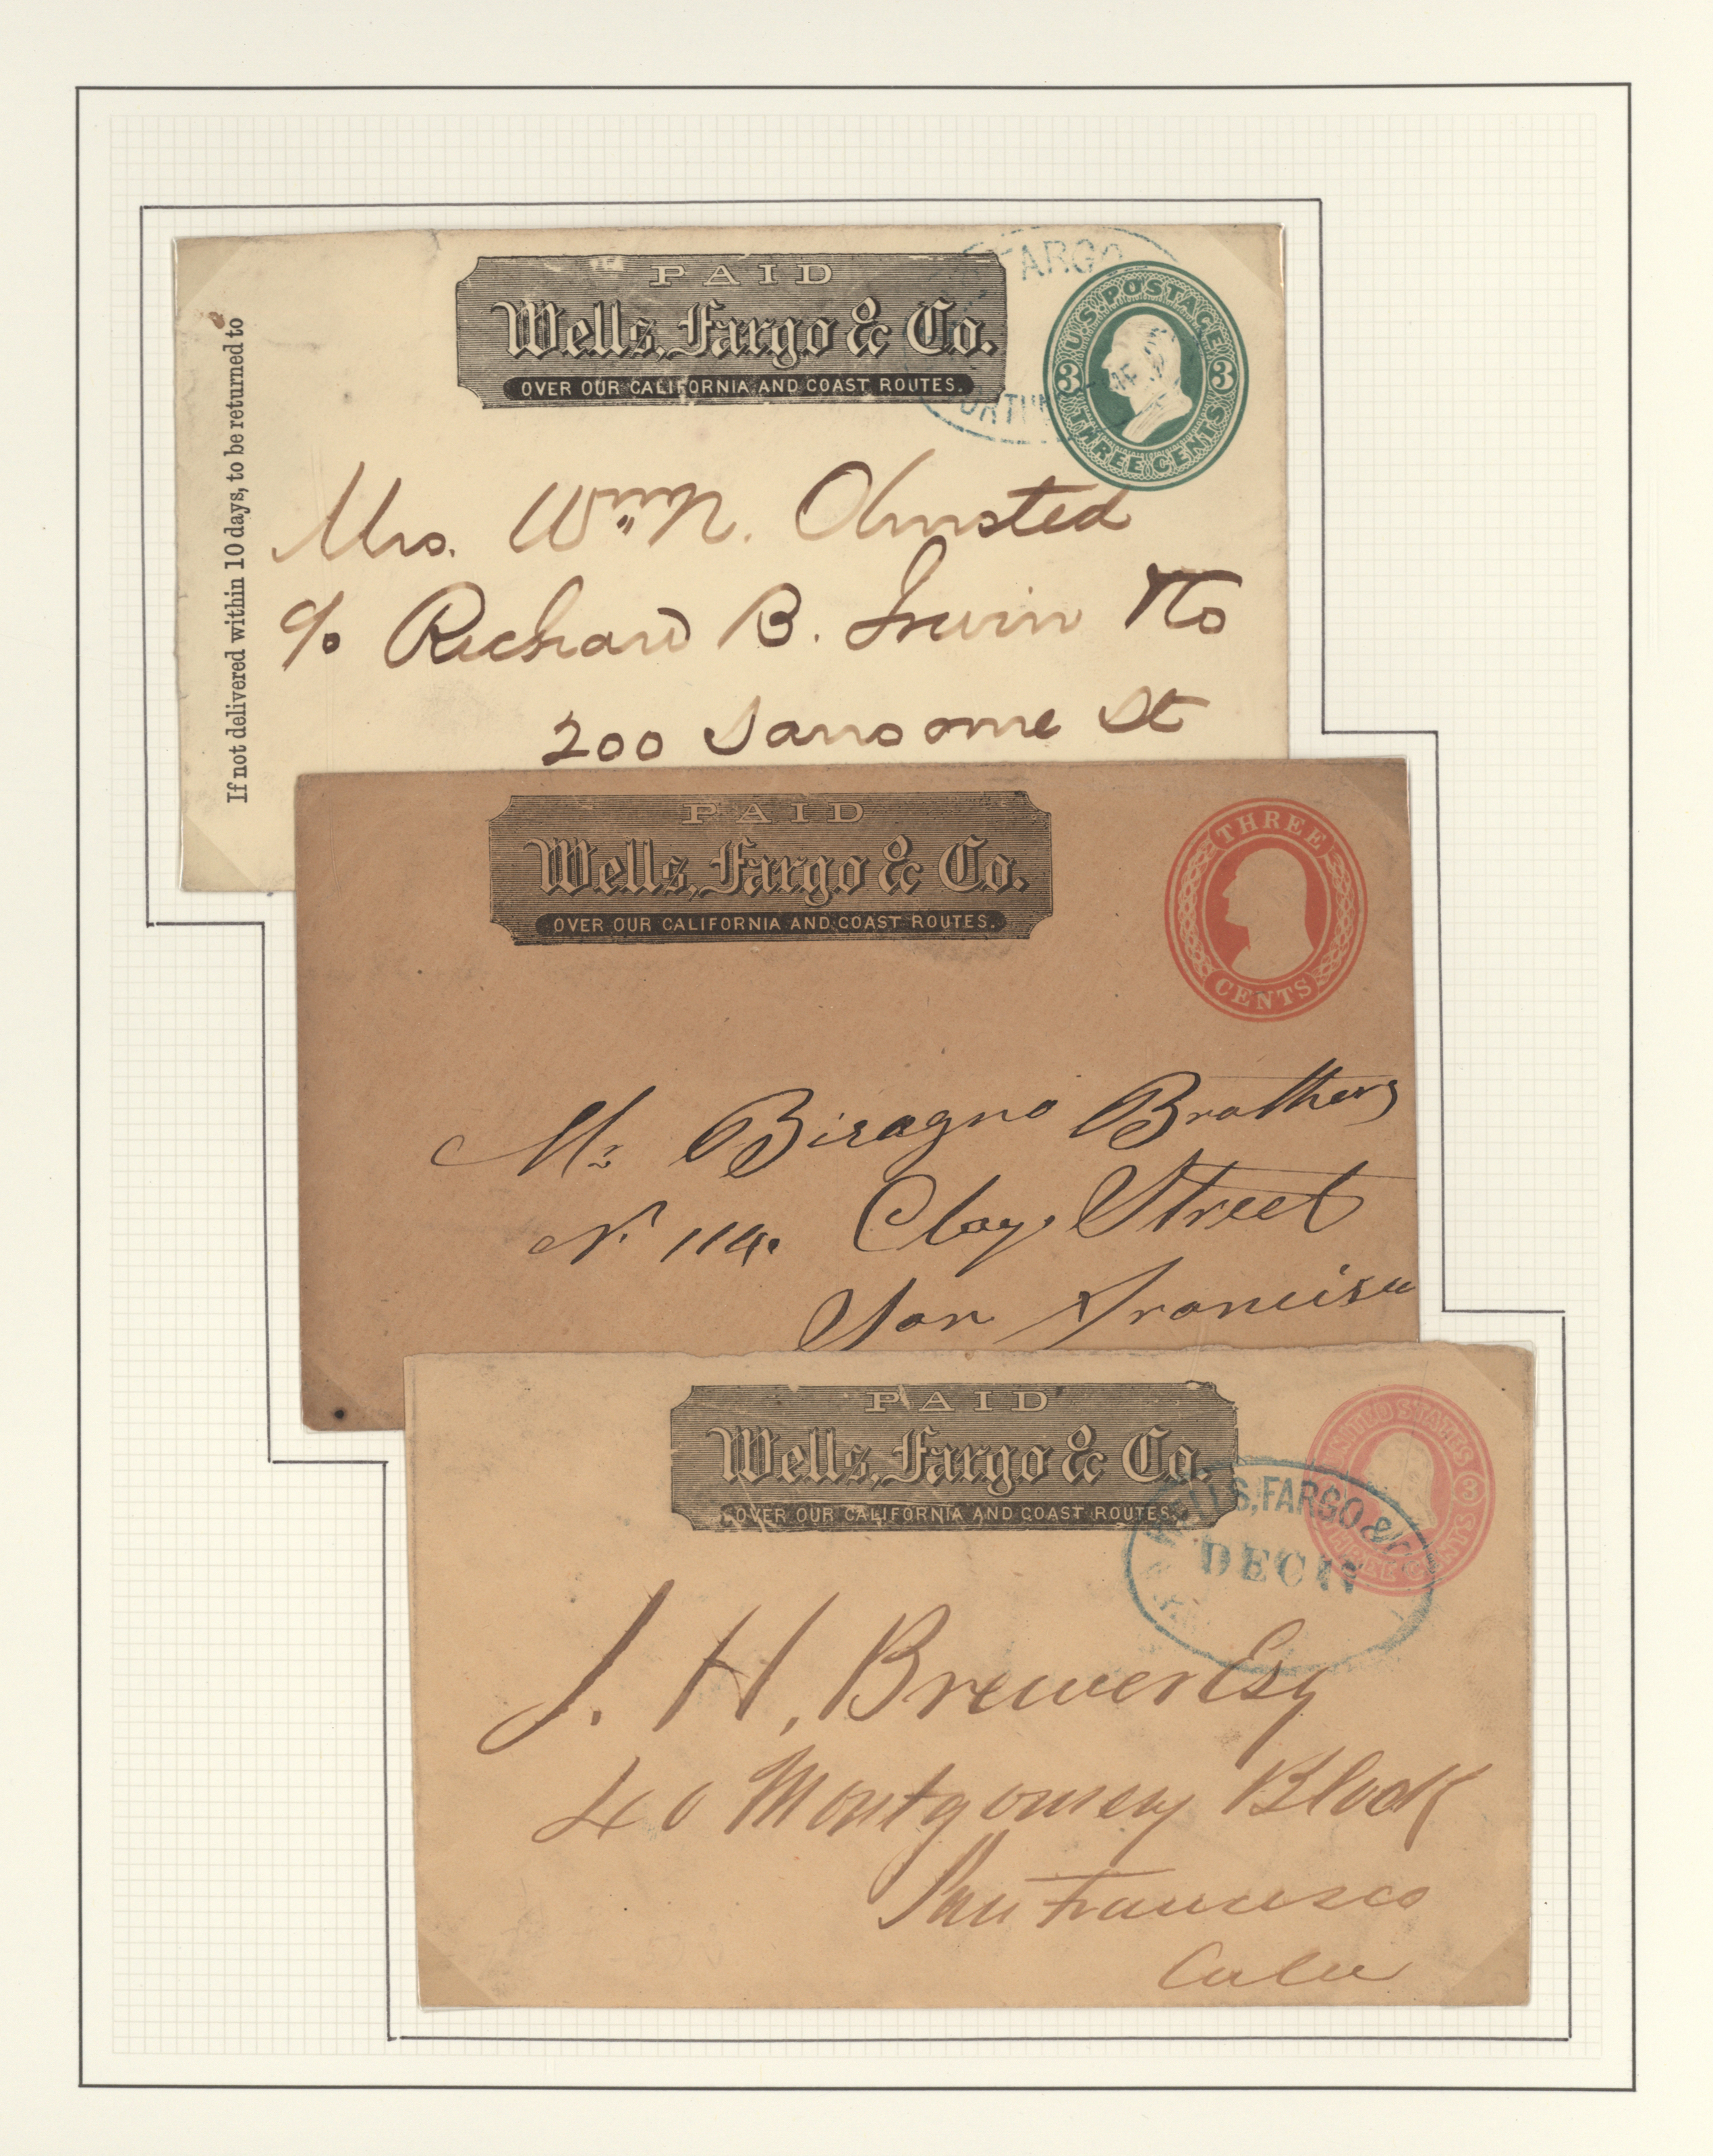 PAID
Wells, Fargo & Co.
OVER OUR CALIFORNIA AND COAST ROUTES.
FARGO
U.S. POSTAGE
3 3
THREE CENTS
If not delivered within 10 days, to be returned to
Mrs. Wm N. Olmsted
c/o Richard B. Irwin & Co
200 Sansome St
PAID
Wells, Fargo & Co.
OVER OUR CALIFORNIA AND COAST ROUTES.
THREE
CENTS
Ms Biragno Brothers
N. 114. Clay Street
San Francisco
PAID
Wells, Fargo & Co.
OVER OUR CALIFORNIA AND COAST ROUTES.
UNITED STATES
3
THREE CENTS
WELLS, FARGO &
DEC
J. H. Brewer Esq
40 Montgomery Block
San Francisco